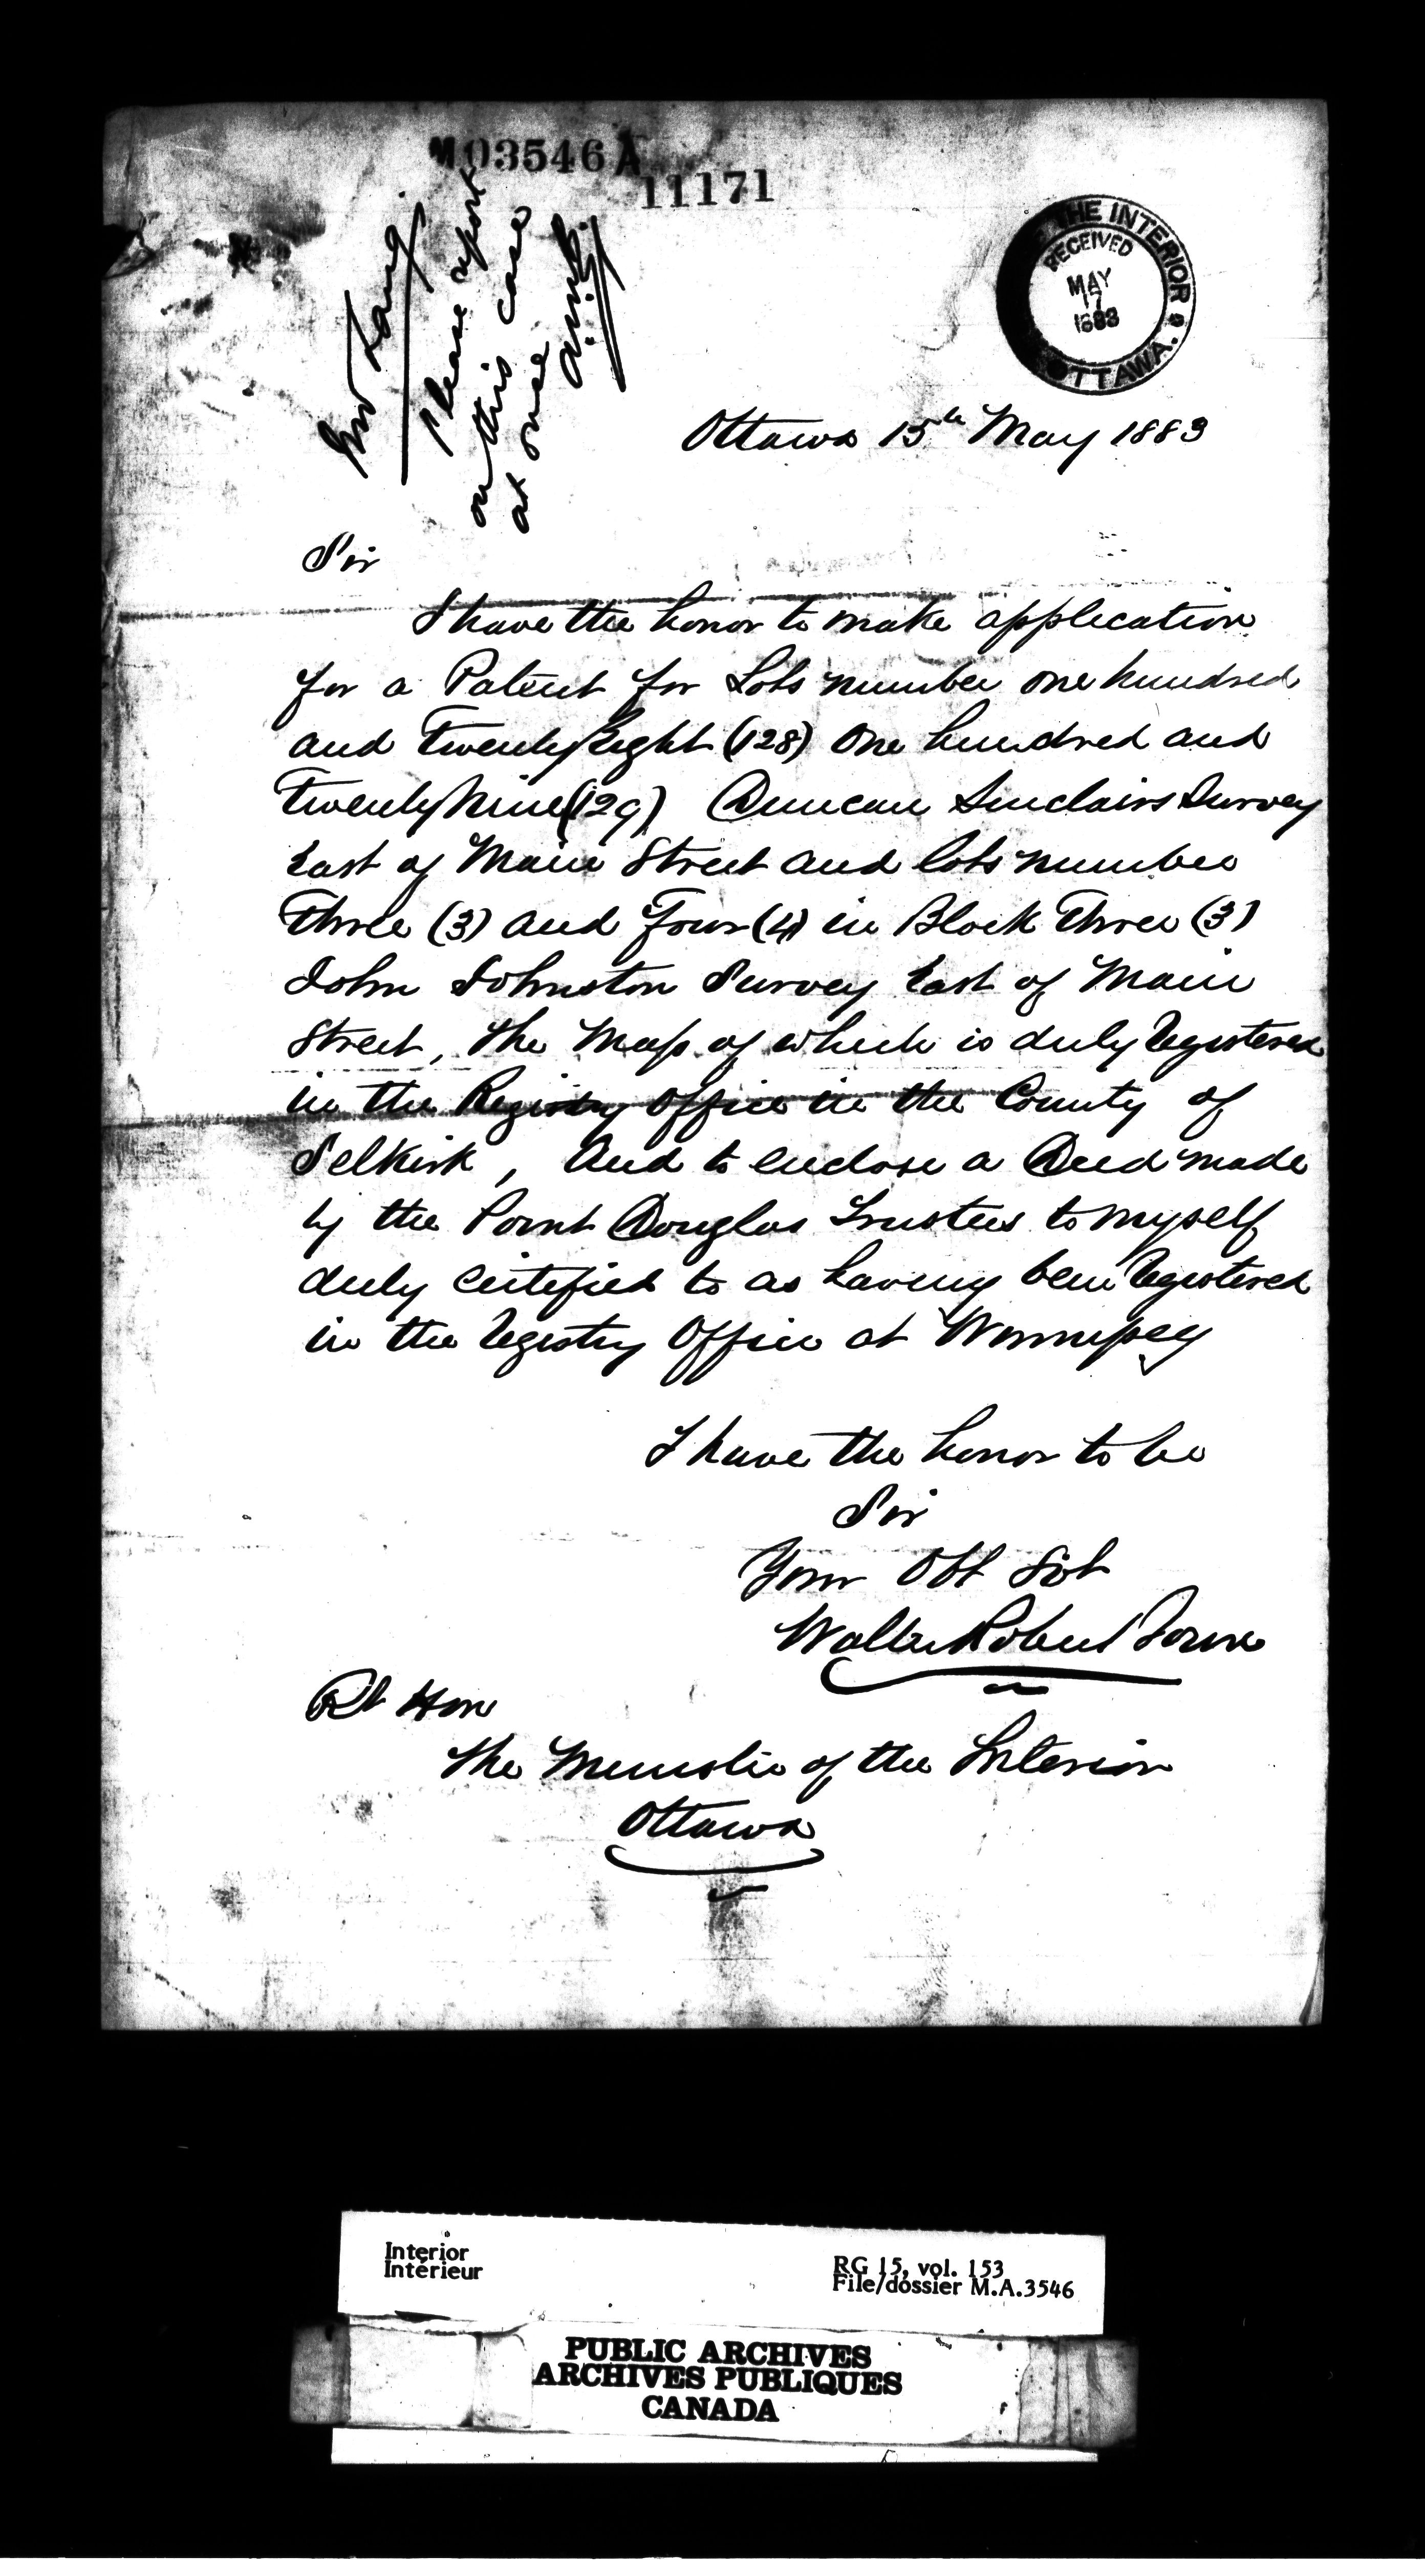 M03546 A
11171
THE INTERIOR
RECEIVED
MAY
17
1883
OTTAWA.
Please report
on this case
at once
Ottawa 15th May 1883
Sir
I have the honor to make application
for a Patent for Lots number one hundred
and Twenty Eight (128) One hundred and
Twenty Nine (129) Duncan Sinclairs Survey
East of Main Street and lots number
Three (3) and Four (4) in Block Three (3)
John Johnston Survey East of Main
Street, the Map of which is duly registered
in the Registry Office in the County of
Selkirk, And to enclose a Deed made
by the Point Douglas Trustees to myself
duly certified to as having been registered
in the registry Office at Winnipeg
I have the honor to be
Sir
Your Obt Svt
Walter Robert Bown
Rt Hon
The Minister of the Interior
Ottawa
Interior
Intérieur
RG 15, vol. 153
File/dossier M.A.3546
PUBLIC ARCHIVES
ARCHIVES PUBLIQUES
CANADA